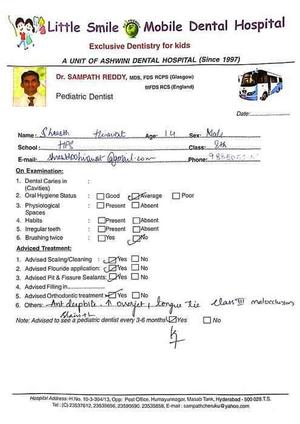 Little Smile Mobile Dental Hospital
Exclusive Dentistry for kids
A UNIT OF ASHWINI DENTAL HOSPITAL (Since 1997)
Dr. SAMPATH REDDY, MDS, FDS RCPS (Glasgow)
MFDS RCS (England)
Pediatric Dentist
Date:
Name: Age: 14 Sex: Male
School: HPS Class: 9th
E-mail: @gmail.com Phone:
On Examination:
1. Dental Caries in (Cavities) :
2. Oral Hygiene Status : Good Average Poor
3. Physiological Spaces : Present Absent
4. Habits : Present Absent
5. Irregular teeth : Present Absent
6. Brushing twice : Yes No
Adviced Treatment:
1. Advised Scaling/Cleaning : Yes No
2. Advised Flouride application: Yes No
3. Advised Pit & Fissure Sealants: Yes No
4. Advised Filling in
5. Advised Orthodontic treatment Yes No
6. Others: Ant deepbite, ↑ overjet, tongue tie class III malocclusion
Note: Advised to see a pediatric dentist every 3-6 months Yes No
Hospital Address: H.No. 10-3-304/13, Opp: Post Office, Humayunnagar, Masab Tank, Hyderabad - 500 028 T.S.
Tel: (C) 23537612, 23535656, 23590690, 23535858, E-mail: sampathchenuku@yahoo.com